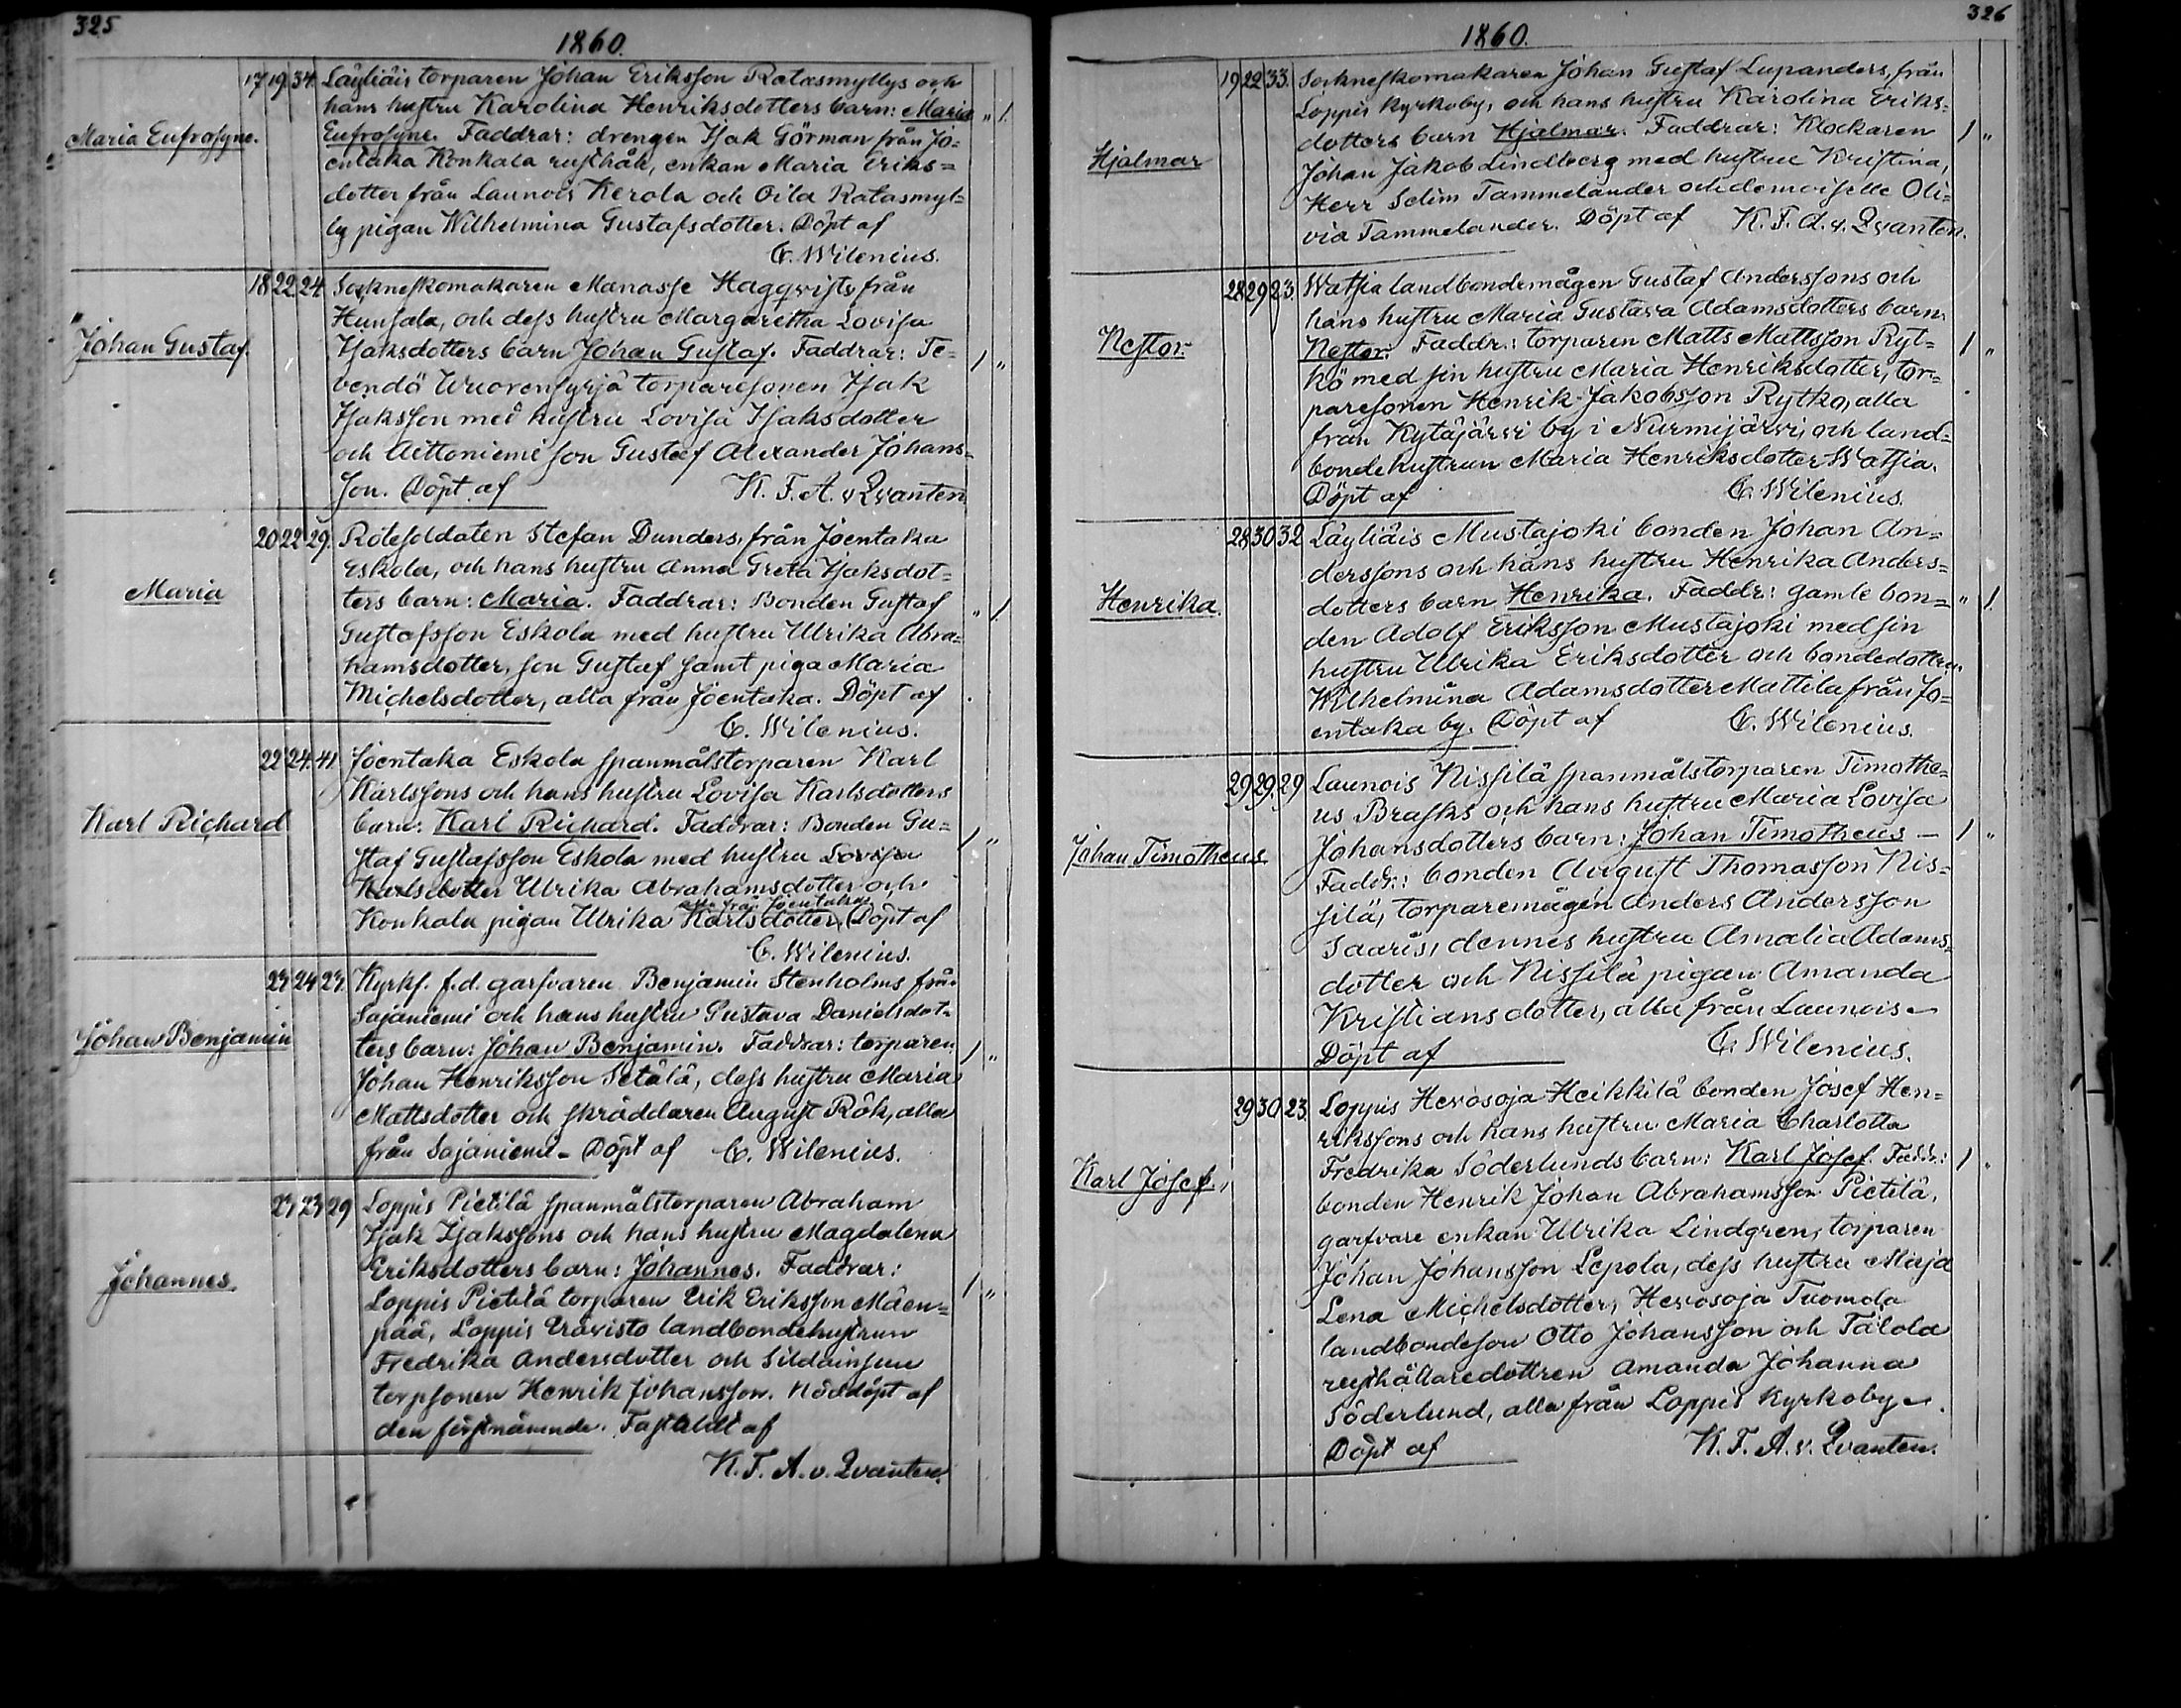 325
1860.
Maria Eufrosyne.
17 19 34. Läyliäis torparen Johan Eriksson Ratasmyllys och
hans hustru Karolina Henriksdotters barn: Maria " 1.
Eufrosyne. Faddrar: drengen Isak Görman från Jo=
entaka Konkala rusthåll, enkan Maria Eriks=
dotter från Launois Kerola och Oila Ratasmyl=
ly pigan Wilhelmina Gustafsdotter. Döpt af
C. Wilenius.
Johan Gustaf.
18 22 24 Sockneskomakaren Manasse Hagqvists från
Hunsala, och dess hustru Margaretha Lovisa
Isaksdotters barn Johan Gustaf. Faddrar: Te= 1 "
vendö Wuorensyrjä torparesonen Isak
Isaksson med hustru Lovisa Isaksdotter
och Aittoniemi son Gustaf Alexander Johans=
son. Döpt af K. F. A. v Qvanten
Maria
20 22 29. Rotesoldaten Stefan Dunders, från Joentaka
Eskola, och hans hustru Anna Greta Isaksdot=
ters barn: Maria. Faddrar: Bonden Gustaf " 1.
Gustafsson Eskola med hustru Ulrika Abra=
hamsdotter, son Gustaf samt piga Maria
Michelsdotter, alla från Joentaka. Döpt af
C. Wilenius.
Karl Richard
22 24. 41. Joentaka Eskola spanmålstorparen Karl
Karlssons och hans hustru Lovisa Karlsdotters
barn: Karl Richard. Faddrar: Bonden Gu= 1 "
staf Gustafsson Eskola med hustru Lovisa
Karlsdotter Ulrika Abrahamsdotter och
alla från Joentaka
Konkala pigan Ulrika Karlsdotter, Döpt af
C. Wilenius.
Johan Benjamin
23 24 27. Kyrks. f.d. garfvaren Benjamin Stenholms från
Sajaniemi och hans hustru Gustava Danielsdot=
ters barn: Johan Benjamin. Faddrar: torparen 1 "
Johan Henriksson Setälä, dess hustru Maria
Mattsdotter och skräddaren August Rök, alla
från Sajaniemi. Döpt af C. Wilenius.
Johannes.
23 23 29 Loppis Pietilä spanmålstorparen Abraham
Isak Isakssons och hans hustru Magdalena
Eriksdotters barn: Johannes. Faddrar:
Loppis Pietilä torparen Erik Eriksson Mäen= 1 "
pää, Loppis Uravisto landbondehustrun
Fredrika Andersdotter och
torpsonen Henrik Johansson. Nöddöpt af
den förstnämnde. Fastäldt af
K. F. A. v. Qvanten.
326
1860.
Hjalmar
19 22 33. Sockneskomakaren Johan Gustaf Lupanders, från
Loppis Kyrkoby, och hans hustru Karolina Eriks=
dotters barn Hjalmar. Faddrar: Klockaren 1 "
Johan Jakob Lindberg med hustru Kristina,
Herr Selim Tammelander och demoiselle Oli=
via Tammelander. Döpt af K. F. A. v. Qvanten.
Nestor.
28 29 23. Watsia landbondemågen Gustaf Anderssons och
hans hustru Maria Gustava Adamsdotters barn:
Nestor. Faddr.: torparen Matts Mattsson Ryt= 1 "
kö med sin hustru Maria Henriksdotter, tor=
paresonen Henrik Jakobsson Rytko, alla
från Kytäjärvi by i Nurmijärvi, och land=
bondehustrun Maria Henriksdotter Watsia.
Döpt af C. Wilenius.
Henrika.
28 30 32 Läyliäis Mustajoki bonden Johan An=
derssons och hans hustru Henrika Anders=
dotters barn Henrika. Faddr: gamle bon= " 1.
den Adolf Eriksson Mustajoki med sin
hustru Ulrika Eriksdotter och bondedottren
Wilhelmina Adamsdotter Mattila från Jo=
entaka by. Döpt af C. Wilenius.
Johan Timotheus
29 29. 29 Launois Nissilä spanmålstorparen Timothe=
us Brasks och hans hustru Maria Lovisa
Johansdotters barn: Johan Timotheus — 1 "
Faddr.: bonden August Thomasson Nis=
silä, torparemågen Anders Andersson
Saaris, dennes hustru Amalia Adams=
dotter och Nissilä pigan Amanda
Kristiansdotter, alla från Launois.
Döpt af C. Wilenius.
Karl Josef,
29 30 23. Loppis Hevosoja Heikkilä bonden Josef Hen=
rikssons och hans hustru Maria Charlotta
Fredrika Söderlunds barn: Karl Josef. Faddr.: 1 "
bonden Henrik Johan Abrahamsson Pietilä,
garfvare enkan Ulrika Lindgren, torparen
Johan Johansson Lepola, dess hustru Maja
Lena Michelsdotter, Hevosoja Tuomola
landbondeson Otto Johansson och Talola
rusthållaredottren Amanda Johanna
Söderlund, alla från Loppis Kyrkoby.
Döpt af K. F. A. v. Qvanten.